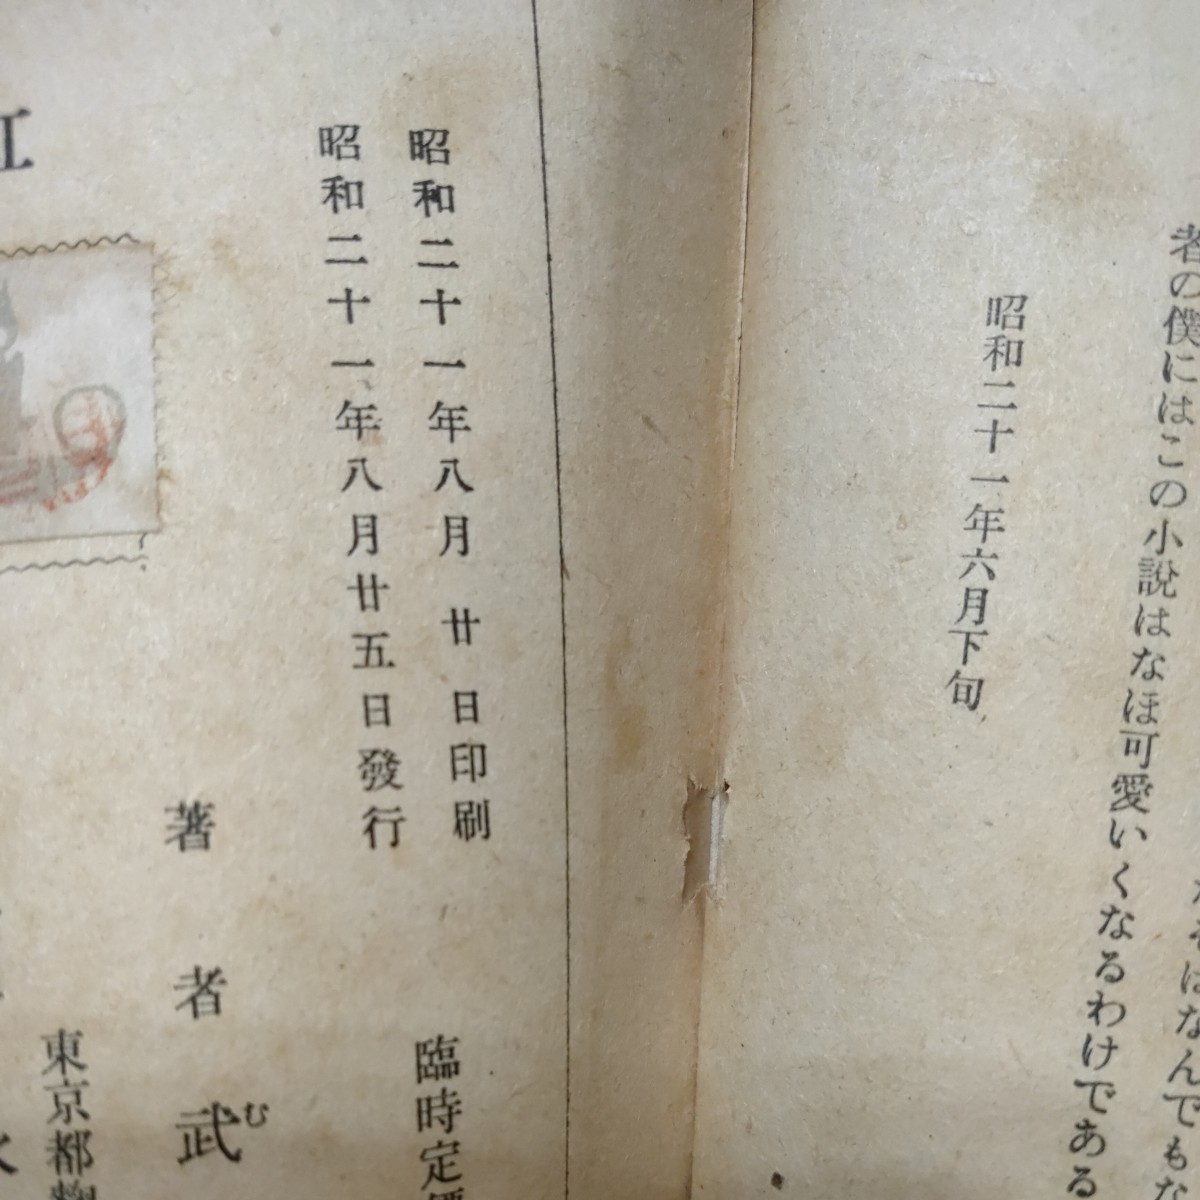 者の僕にはこの小說はなほ可愛いくなるわけである
昭和二十一年六月下旬
昭和二十一年八月 廿 日印刷
昭和二十一年八月廿五日發行
臨時定
著者 武
む
東京都